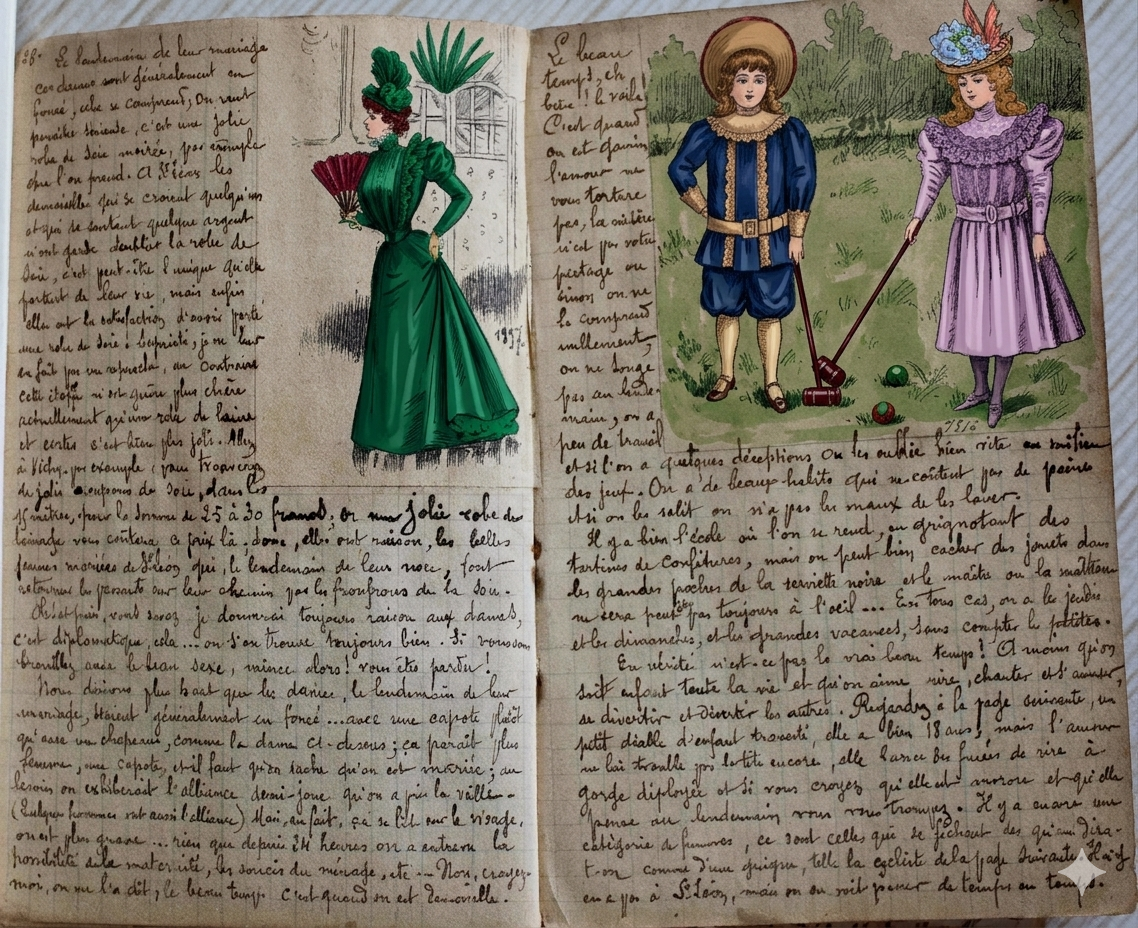 28. Le lendemain de leur mariage
ces dames sont généralement en
foncé, cela se comprend; On veut
paraître sérieuse, c'est une jolie
robe de soie moirée, par exemple
que l'on prend. A St Léon les
demoiselles qui se croient quelqu'un
et qui se sentent quelque argent
n'ont garde d'oublier la robe de
soie, c'est peut-être l'unique qu'elles
portent de leur vie, mais enfin
elles ont la satisfaction d'avoir porté
une robe de soie
en fait pas un reproche, au contraire
cette étoffe n'est guère plus chère
actuellement qu'une robe de laine
et certes c'est bien plus joli. Allez
à Vichy par exemple, vous trouverez
de jolis coupons de soie, dans les
15 mètres, pour la somme de 25 à 30 francs, or une jolie robe de
lainage vous coûtera ce prix là; donc, elles ont raison, les belles
jeunes mariées de St Léon qui, le lendemain de leur noce, font
retourner les passants sur leur chemin par les froufrous de la soie.
Et puis, vous savez je donnerai toujours raison aux dames,
c'est diplomatique, cela... on s'en trouve toujours bien. Si vous vous
brouillez avec le beau sexe, mince alors! vous êtes perdu!
Nous disions plus haut que les dames, le lendemain de leur
mariage, étaient généralement en foncé... avec une capote plutôt
qu'avec un chapeau, comme la dame ci-dessus; ça paraît plus
femme, une capote, et il faut qu'on sache qu'on est mariée; au
besoin on exhiberait l'alliance qu'on a pris la veille.
(Quelques hommes ont aussi l'alliance) Mais, au fait, ça se lit sur le visage,
on est plus grave... rien que depuis 24 heures on a entrevu la
possibilité de la maternité, les soucis du ménage, etc - Non, croyez-
moi, on me l'a dit, le beau temps c'est quand on est demoiselle.
1897
Le beau
temps, eh
bien! le voilà!
C'est quand
on est gamin
l'amour ne
vous torture
pas, la misère
n'est pas votre
partage ou
sinon on ne
la comprend
nullement,
on ne songe
pas au lende
main, on a
peu de travail
et si l'on a quelques déceptions on les oublie bien vite
des jeux. On a de beaux habits qui ne coûtent pas de peines
et si on les salit on n'a pas les maux de les laver.
Il y a bien l'école où l'on se rend, en grignotant des
tartines de confitures, mais on peut bien cacher des jouets dans
les grandes poches de la serviette noire et le maître ou la maîtresse
ne sera peut être pas toujours à l'oeil... En tous cas, on a les jeudis
et les dimanches, et les grandes vacances, sans compter les petites.
En vérité n'est-ce pas le vrai beau temps! A moins qu'on
soit enfant toute la vie et qu'on aime rire, chanter et s'amuser,
se divertir et divertir les autres. Regardez à la page suivante, un
petit diable d'enfant travesti, elle a bien 18 ans, mais l'amour
ne lui trouble pas la tête encore, elle lance des fusées de rire à
gorge déployée et si vous croyez qu'elle est morose et qu'elle
pense au lendemain vous vous trompez. Il y a encore une
catégorie de femmes, ce sont celles qui se fichent des qu'en dira-
t-on comme d'une guigne, telle la cycliste de la page suivante. Il n'y
en a pas à St Léon, mais on en voit passer de temps en temps.